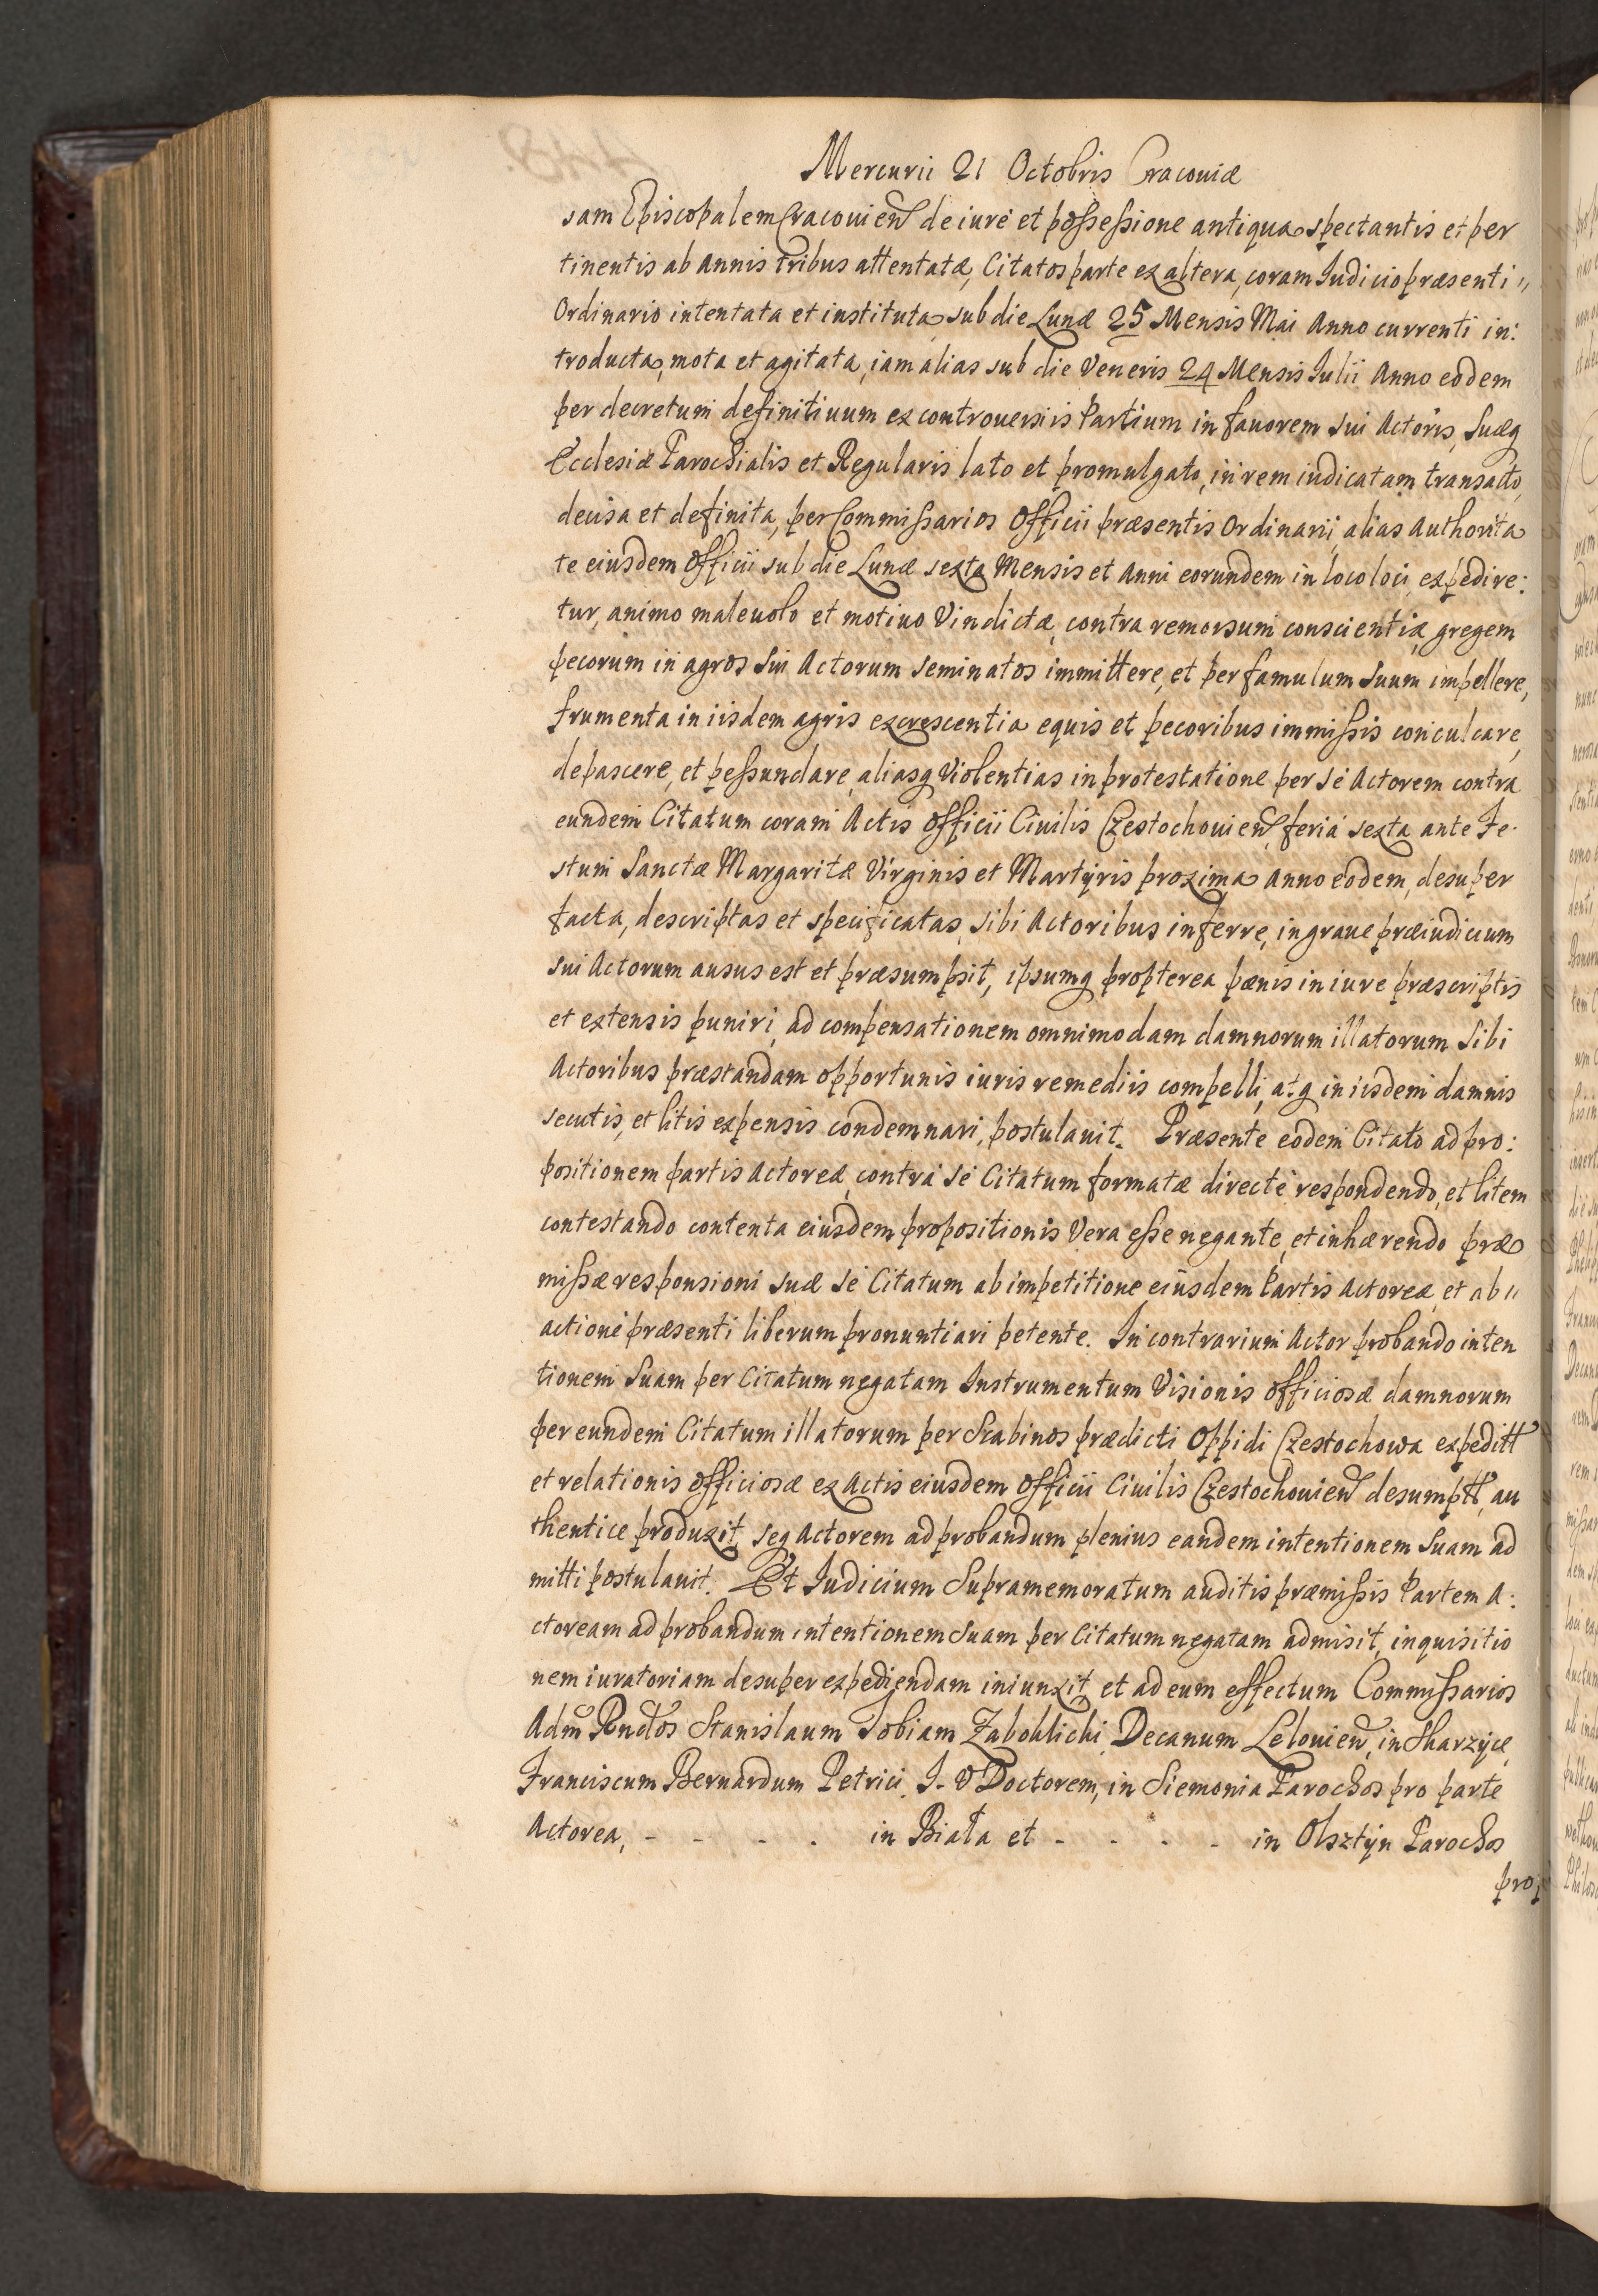 Mercurii 21 Octobris Cracouiæ
sam Episcopalem Cracouien̄ de iure et possessione antiqua spectantis et per
tinentis ab annis tribus attentatæ, Citatos parte ex altera, coram Iudicio præsenti „
Ordinario intentata et instituta sub die Lunæ 25 Mensis Mai Anno currenti in:
troducta, mota et agitata, iam alias sub die Veneris 24 Mensis Iulii Anno eodem
per decretum definitiuum ex controuersiis Partium in fauorem sui Actoris, suæq
Ecclesiæ Parochialis et Regularis lato et promulgato, in rem iudicatam transacto,
decisa et definita, per Commissarios Officii præsentis Ordinarii, alias Authorita
te eiusdem Officii sub die Lunæ sexta Mensis et Anni eorundem in loco loci expedire:
tur, animo maleuolo et motiuo Vindictæ, contra remorsum conscientiæ, gregem
pecorum in agros sui Actorum seminatos immittere, et per famulum suum impellere,
frumenta in iisdem agris excrescentia equis et pecoribus immissis conculcare,
depascere, et pessundare, aliasq Violentias in protestatione per se Actorem contra
eundem Citatum coram Actis Officii Ciuilis Czestochouien̄ feria sexta ante Fe-
stum Sanctæ Margaritæ Virginis et Martyris proxima anno eodem, desuper
facta, descriptas et specificatas, sibi Actoribus inferre, in graue præiudicium
sui Actorum ausus est et præsumpsit, ipsumq propterea pænis in iure præscriptis
et extensis puniri, ad compensationem omnimodam damnorum illatorum sibi
Actoribus præstandam opportunis iuris remediis compelli, atq in iisdem damnis
secutis, et litis expensis condemnari, postulauit. Præsente eodem Citato ad pro:
positionem partis Actoreæ, contra se Citatum formatæ directe respondendo, et litem
contestando contenta eiusdem propositionis Vera esse negante, et inhærendo præ
missæ responsioni suæ se Citatum ab impetitione eiusdem Partis Actoreæ, et ab „
actione præsenti liberum pronuntiari petente. In contrarium Actor probando inten
tionem suam per Citatum negatam Instrumentum Visionis officiosæ damnorum
per eundem Citatum illatorum per Scabinos prædicti Oppidi Czestochowa expeditt
et relationis officiosæ ex Actis eiusdem Officii Ciuilis Czestochouien̄ desumptt, au
thentice produxit, seq Actorem ad probandum plenius eandem intentionem suam ad
mitti postulauit. Et Iudicium Supramemoratum auditis præmissis Partem A:
ctoream ad probandum intentionem suam per Citatum negatam admisit, inquisitio
nem iuratoriam desuper expediendam iniunxit, et ad eum effectum Commissarios
Adm Rndos Stanislaum Tobiam Zaboklicki Decanum Lelouien̄, in Skarzyce,
Franciscum Bernardum Petrici, I. V Doctorem, in Siemonia Parochos pro parte
Actorea, - - - . in Biała et - - - - in Olsztyn Parochos
pro p